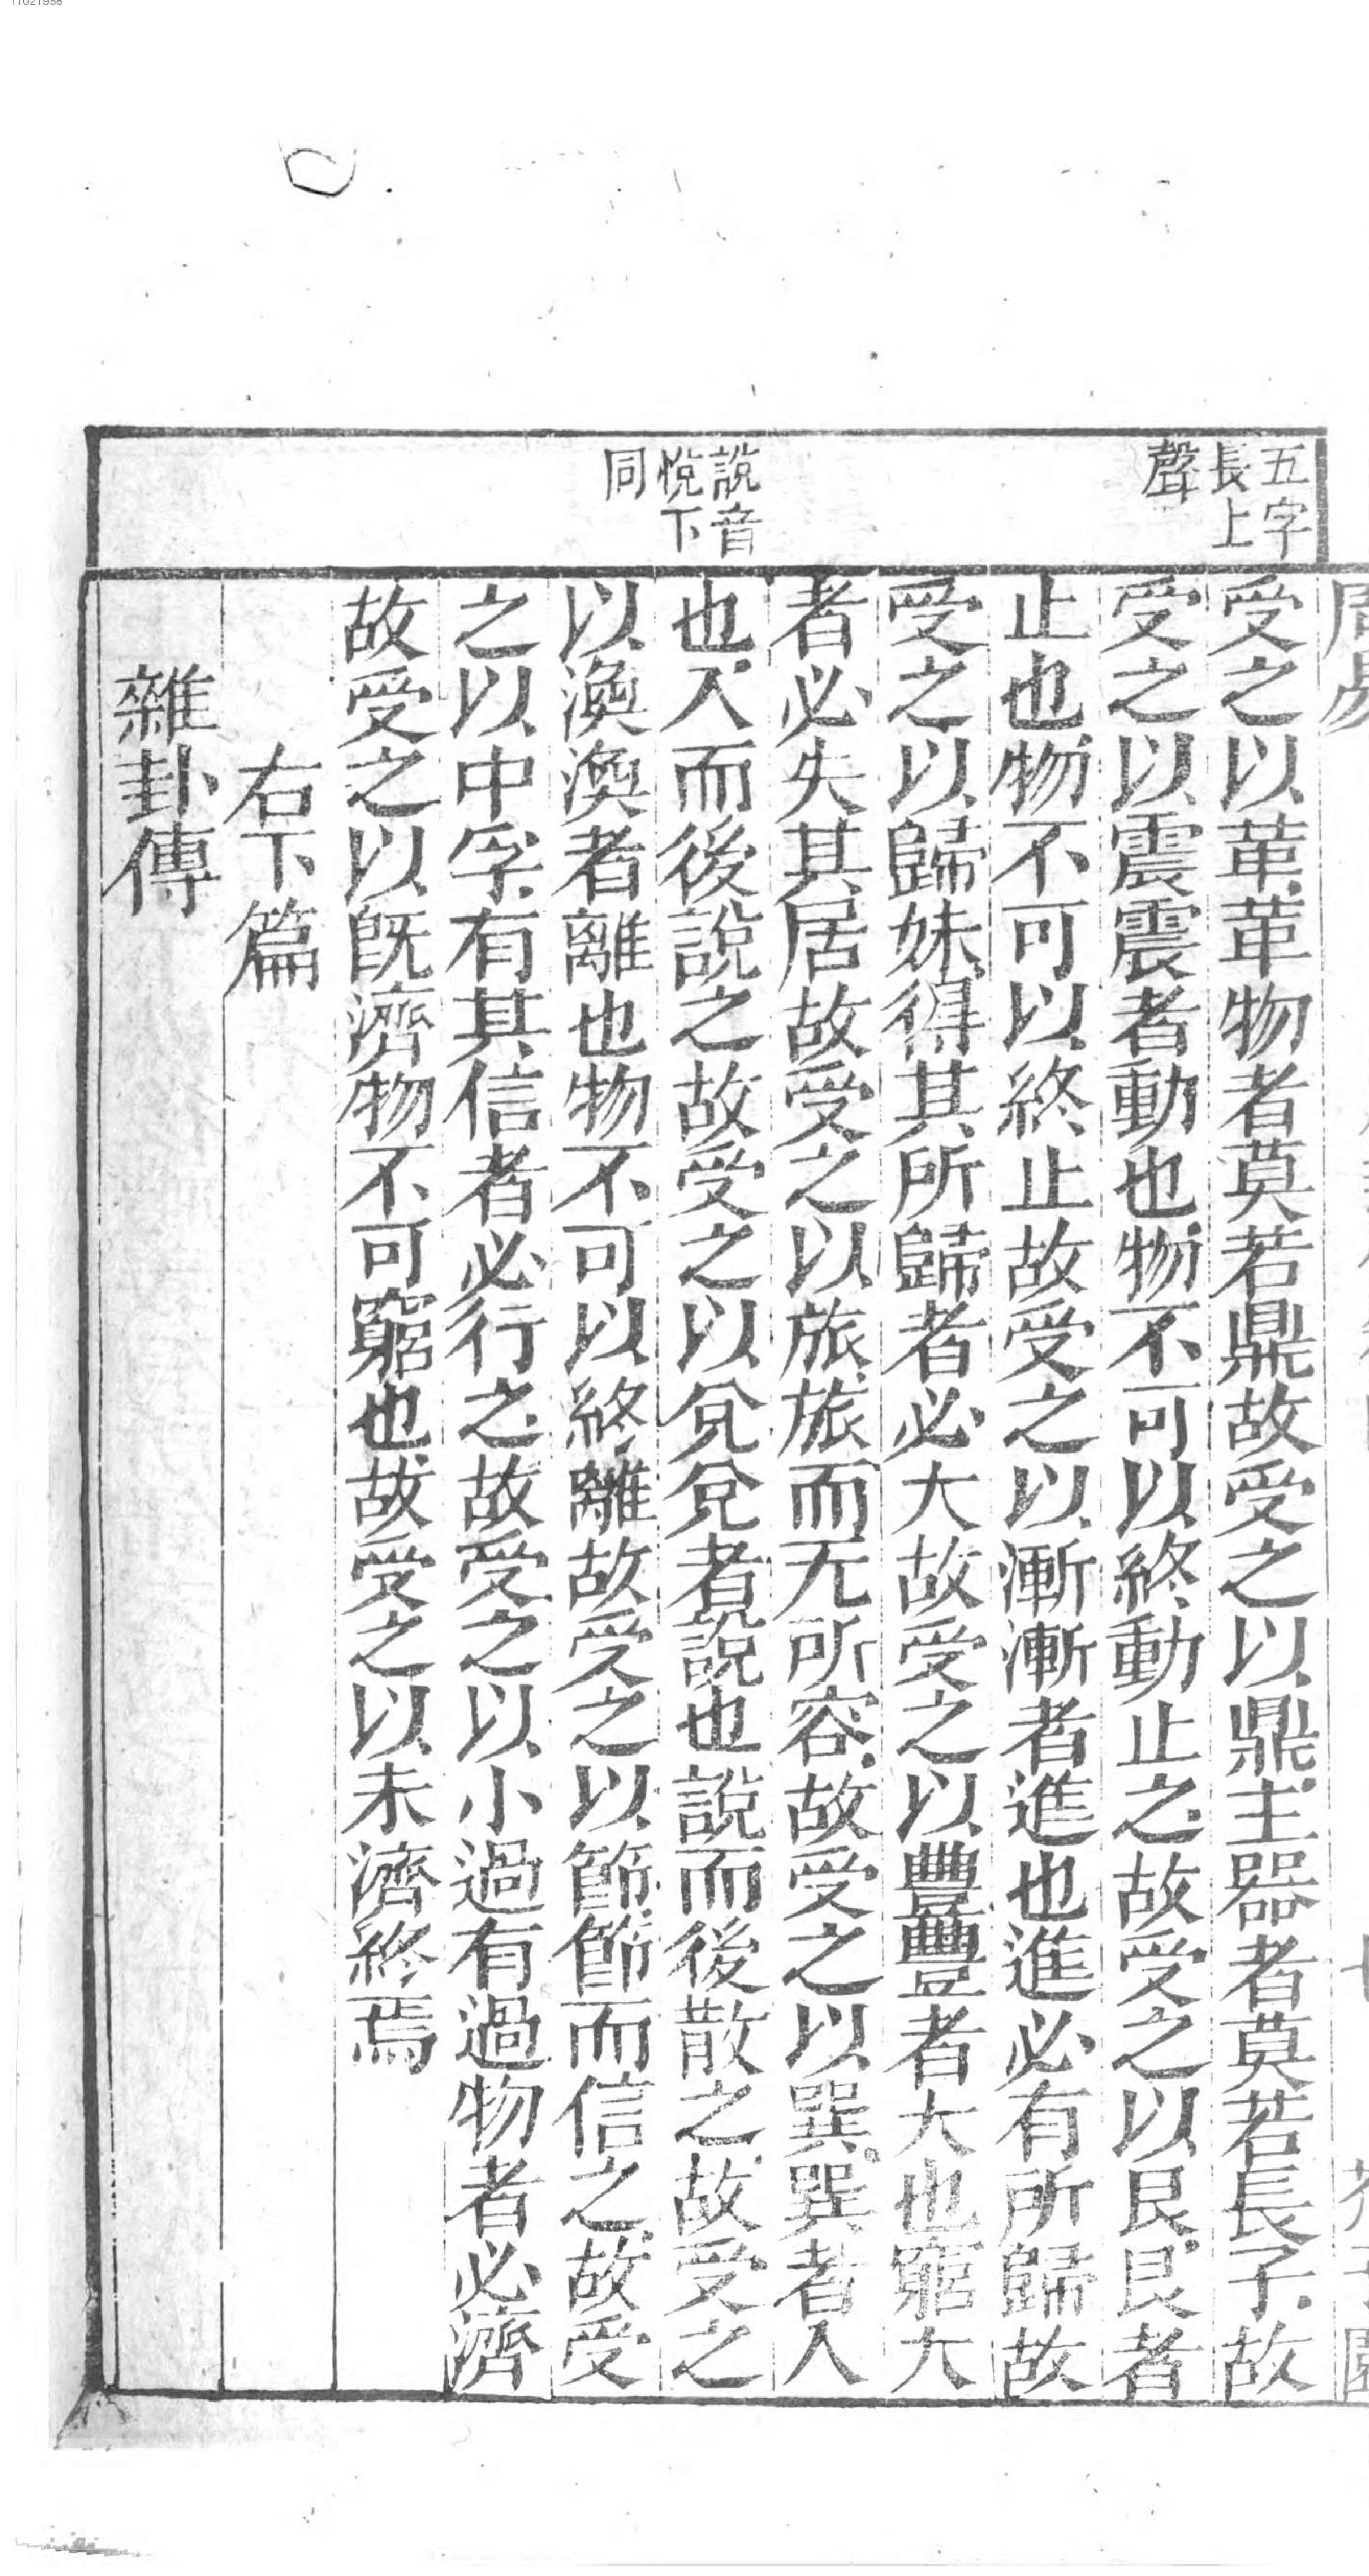 11021958
周易
五字
長上
聲
說音
悅下
同
受之以革革物者莫若鼎故受之以鼎主器者莫若長子故
受之以震震者動也物不可以終動止之故受之以艮艮者
止也物不可以終止故受之以漸漸者進也進必有所歸故
受之以歸妹得其所歸者必大故受之以豐豐者大也窮大
者必失其居故受之以旅旅而无所容故受之以巽巽者入
也入而後說之故受之以兌兌者說也說而後散之故受之
以渙渙者離也物不可以終離故受之以節節而信之故受
之以中孚有其信者必行之故受之以小過有過物者必濟
故受之以既濟物不可窮也故受之以未濟終焉
右下篇
雜卦傳